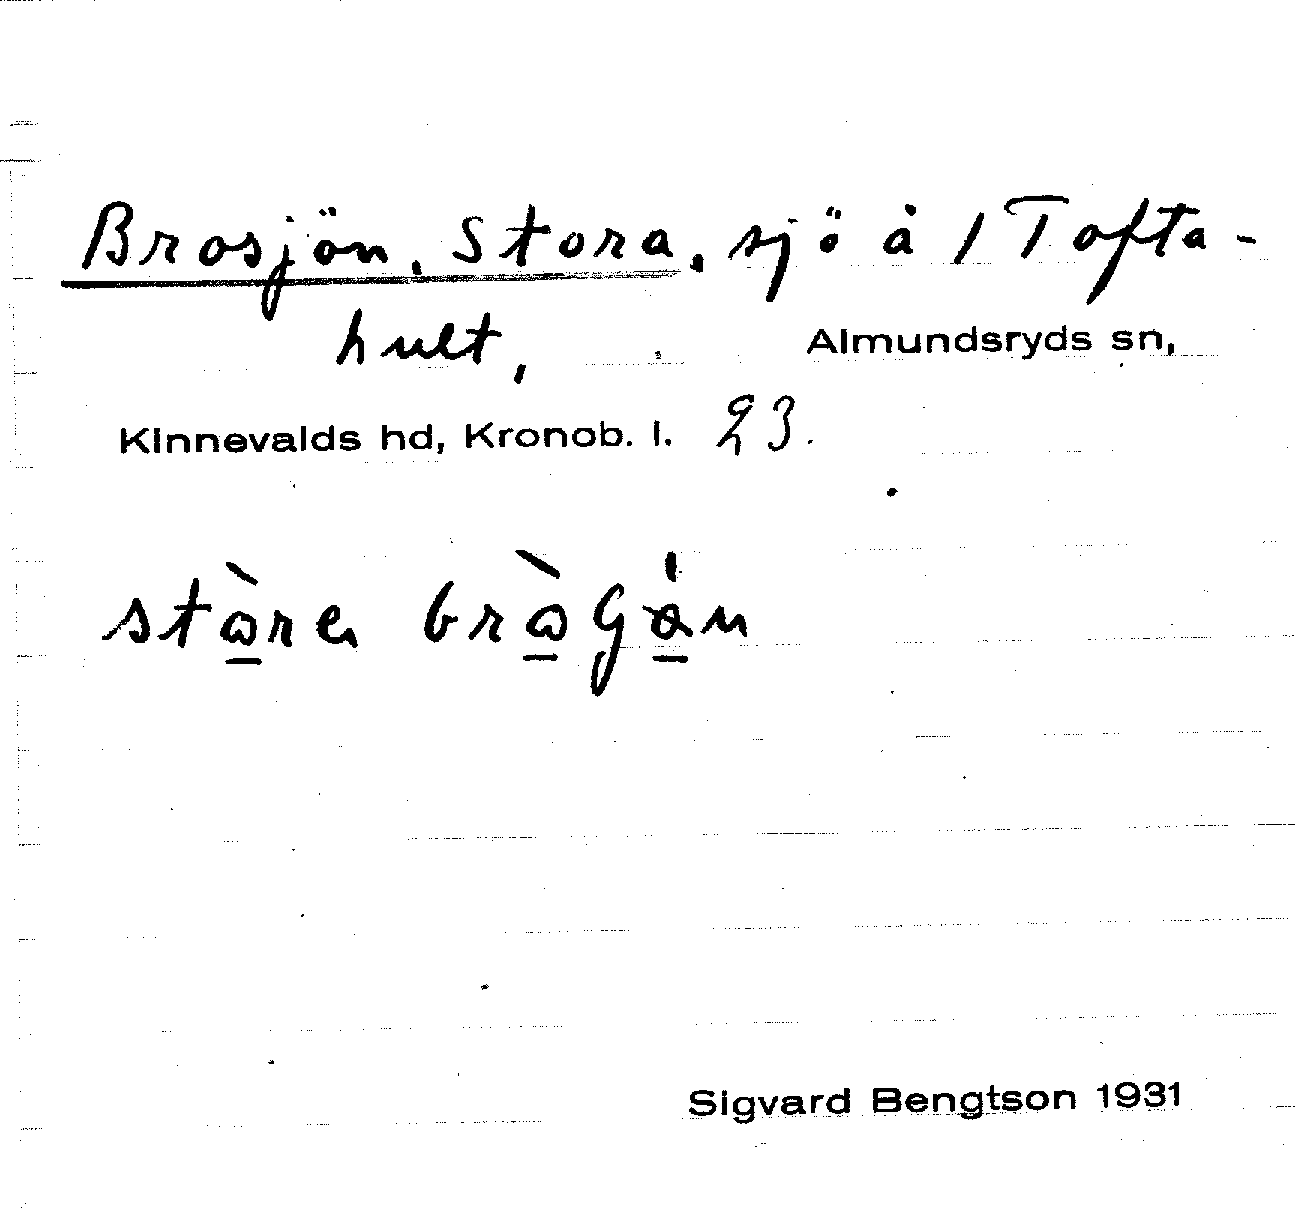 Brosjön, Stora, sjö å 1 Tofta-
hult, Almundsryds sn,
Kinnevalds hd, Kronob. l. 23.
Sigvard Bengtson 1931